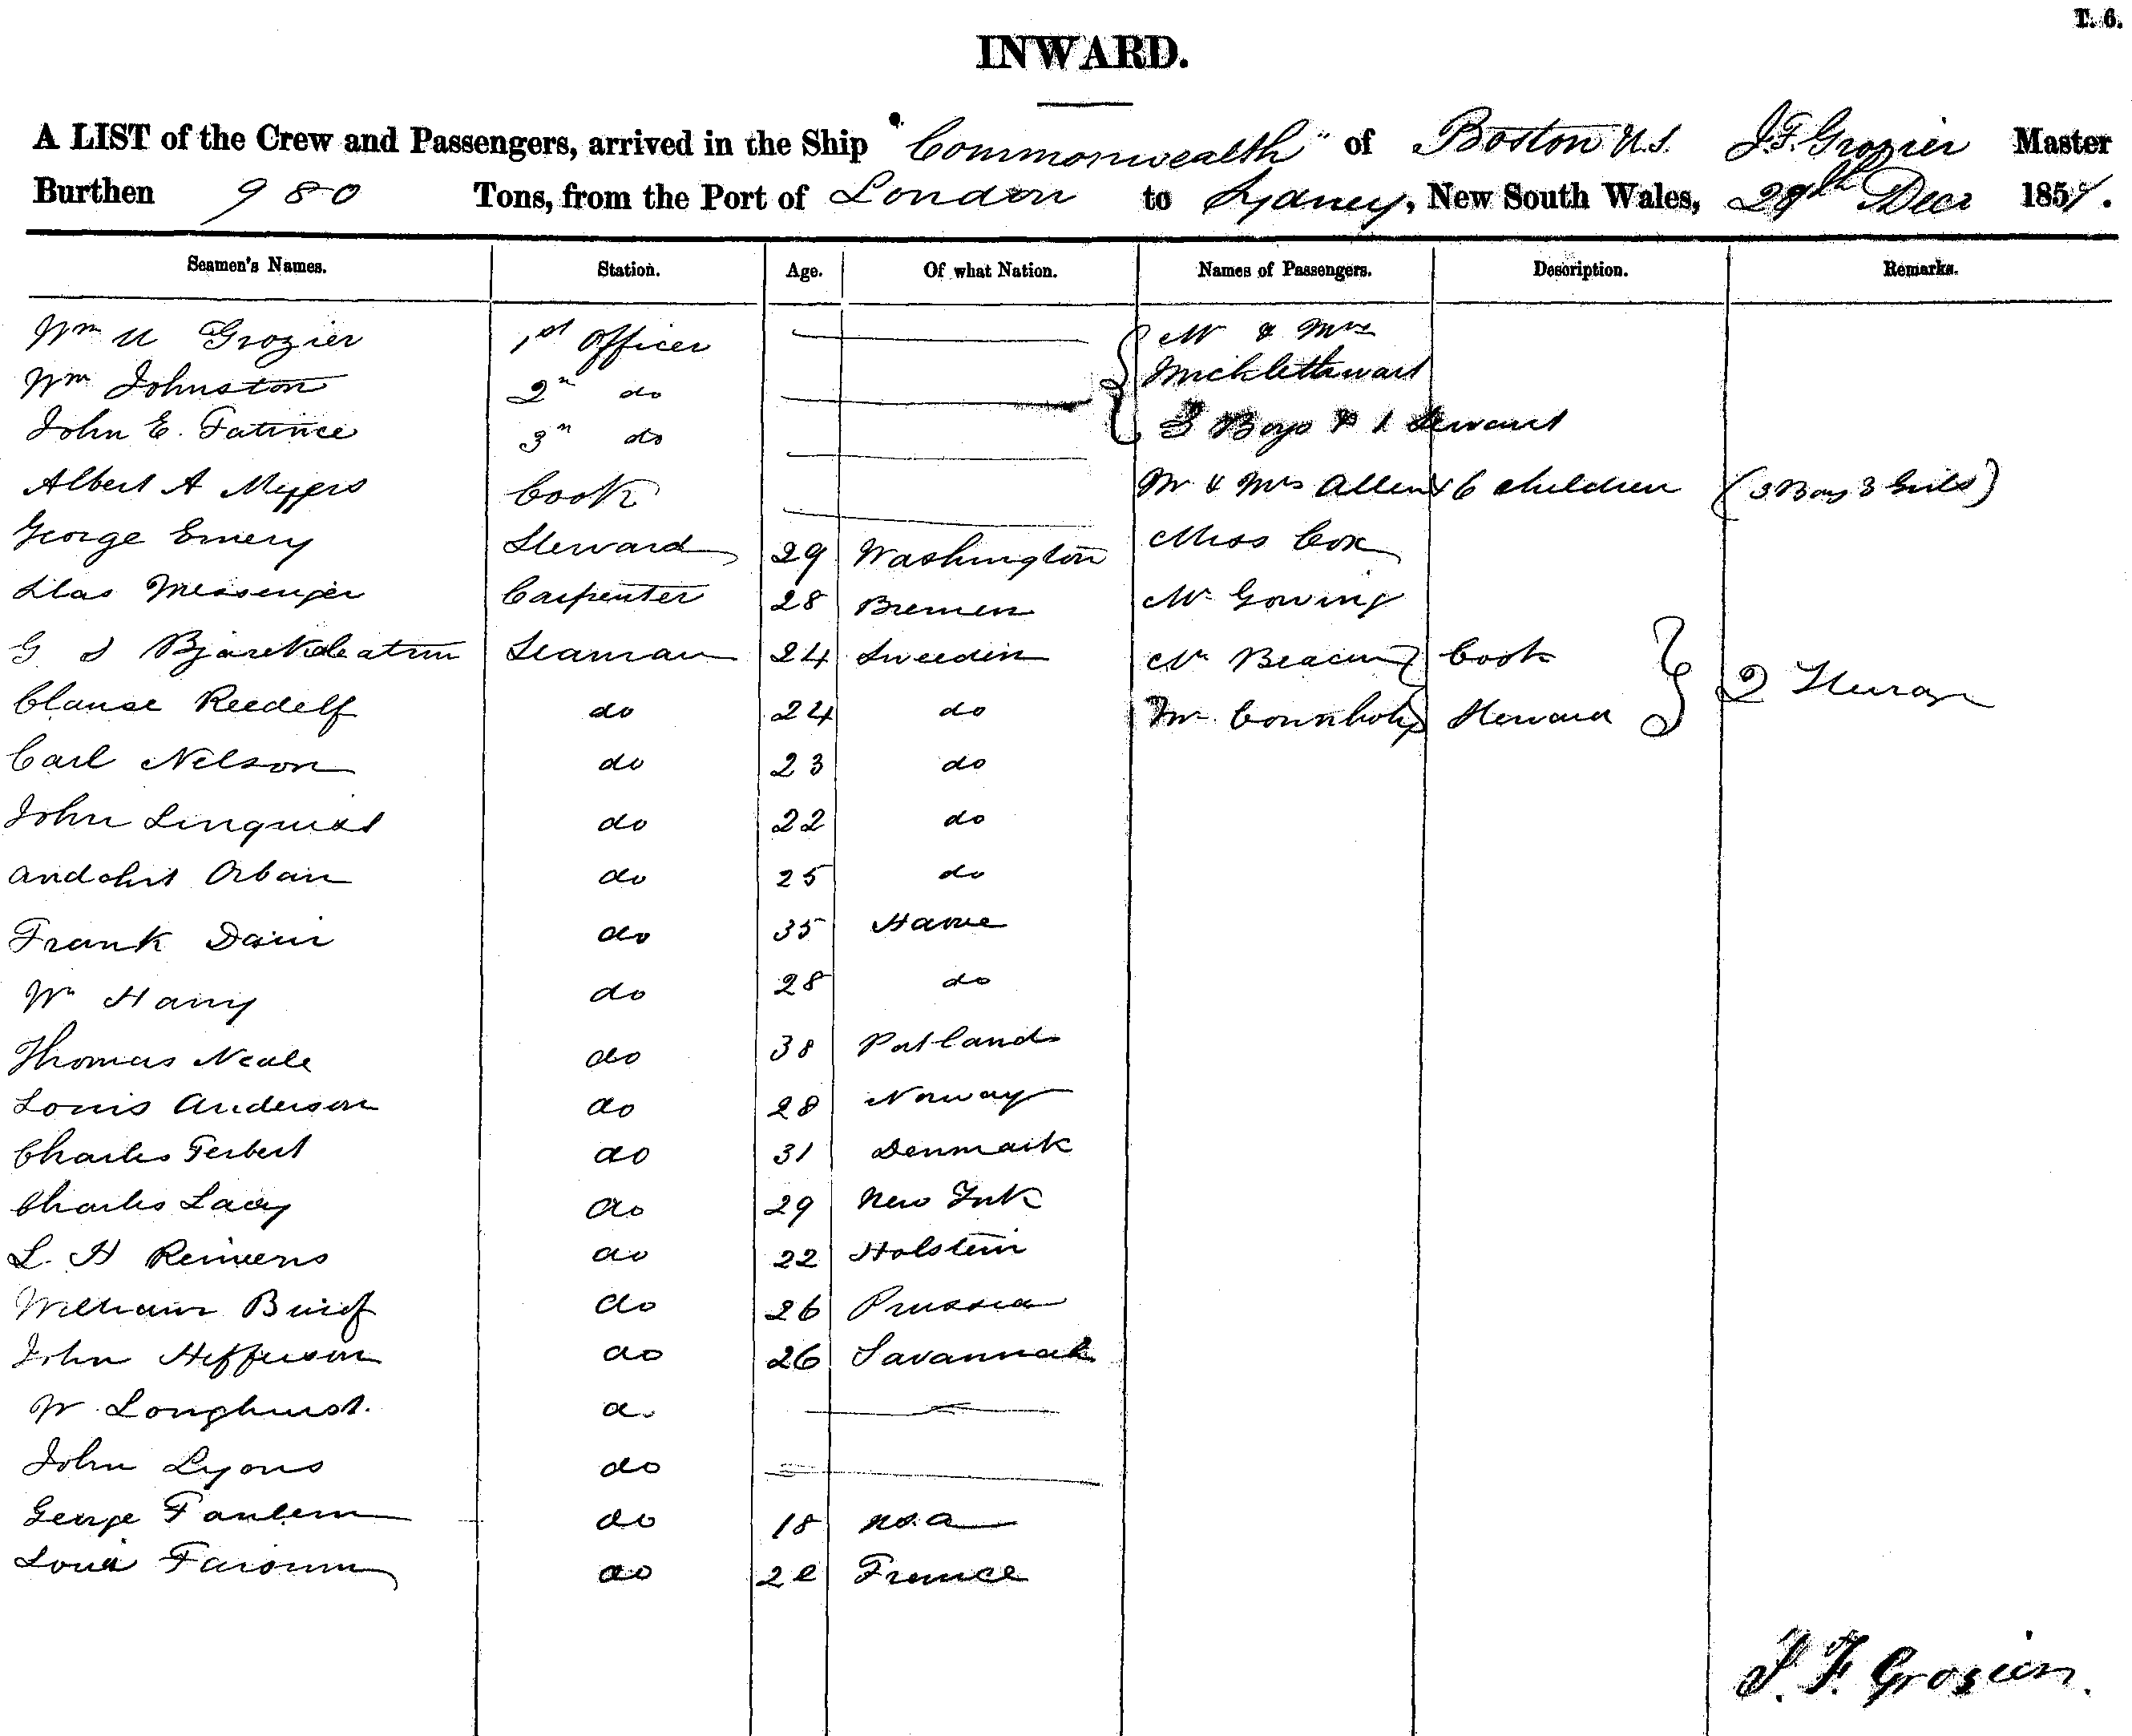 T. 6.
INWARD.
A LIST of the Crew and Passengers, arrived in the Ship "Commonwealth" of Boston U.S. J. F. Grozier Master
Burthen 980 Tons, from the Port of London to Sydney, New South Wales, 29th Decr 185
Seamen's Names. Station. Age. Of what Nation. Names of Passengers. Description. Remarks.
Wm U Grozier 1st Officer Mr & Mrs
Wm Johnston 2n do Micklethwart
John E. 3n do 3 Boys & 1 Servant
Albert A Meyers Cook Mr & Mrs Allen & 6 children (3 Boys 3 Girls)
George Emery Steward 29 Washington Miss Cox
Messenger Carpenter 28 Bremen Mr Gowing
G Seaman 24 Sweedin Mr Cook
Clause Reedelf do 24 do Mr Steward 2
Carl Nelson do 23 do
John Linquist do 22 do
Orban do 25 do
Frank Dain do 35 Havre
Wm Harry do 28 do
Thomas Neale do 38 Portland
Louis Anderson do 28 Norway
Charles Ferbert do 31 Denmark
Charles Lacy do 29 New York
L. H Reimers do 22 Holstein
William do 26 Prussia
John Hefferson do 26 Savannah
W. Longhurst. do
John Lyons do
George do 18
do France
J. F. Grozier.